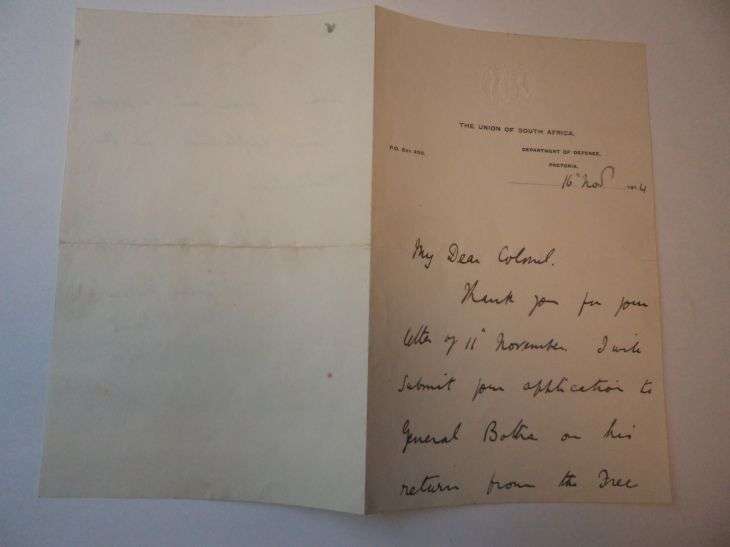 THE UNION OF SOUTH AFRICA.
P.O. Box
DEPARTMENT OF DEFENSE,
PRETORIA,
16th Nov 1914
My Dear Colonel.
Thank you for your
letter of 11th November. I will
submit your application to
General Botha on his
return from the Free